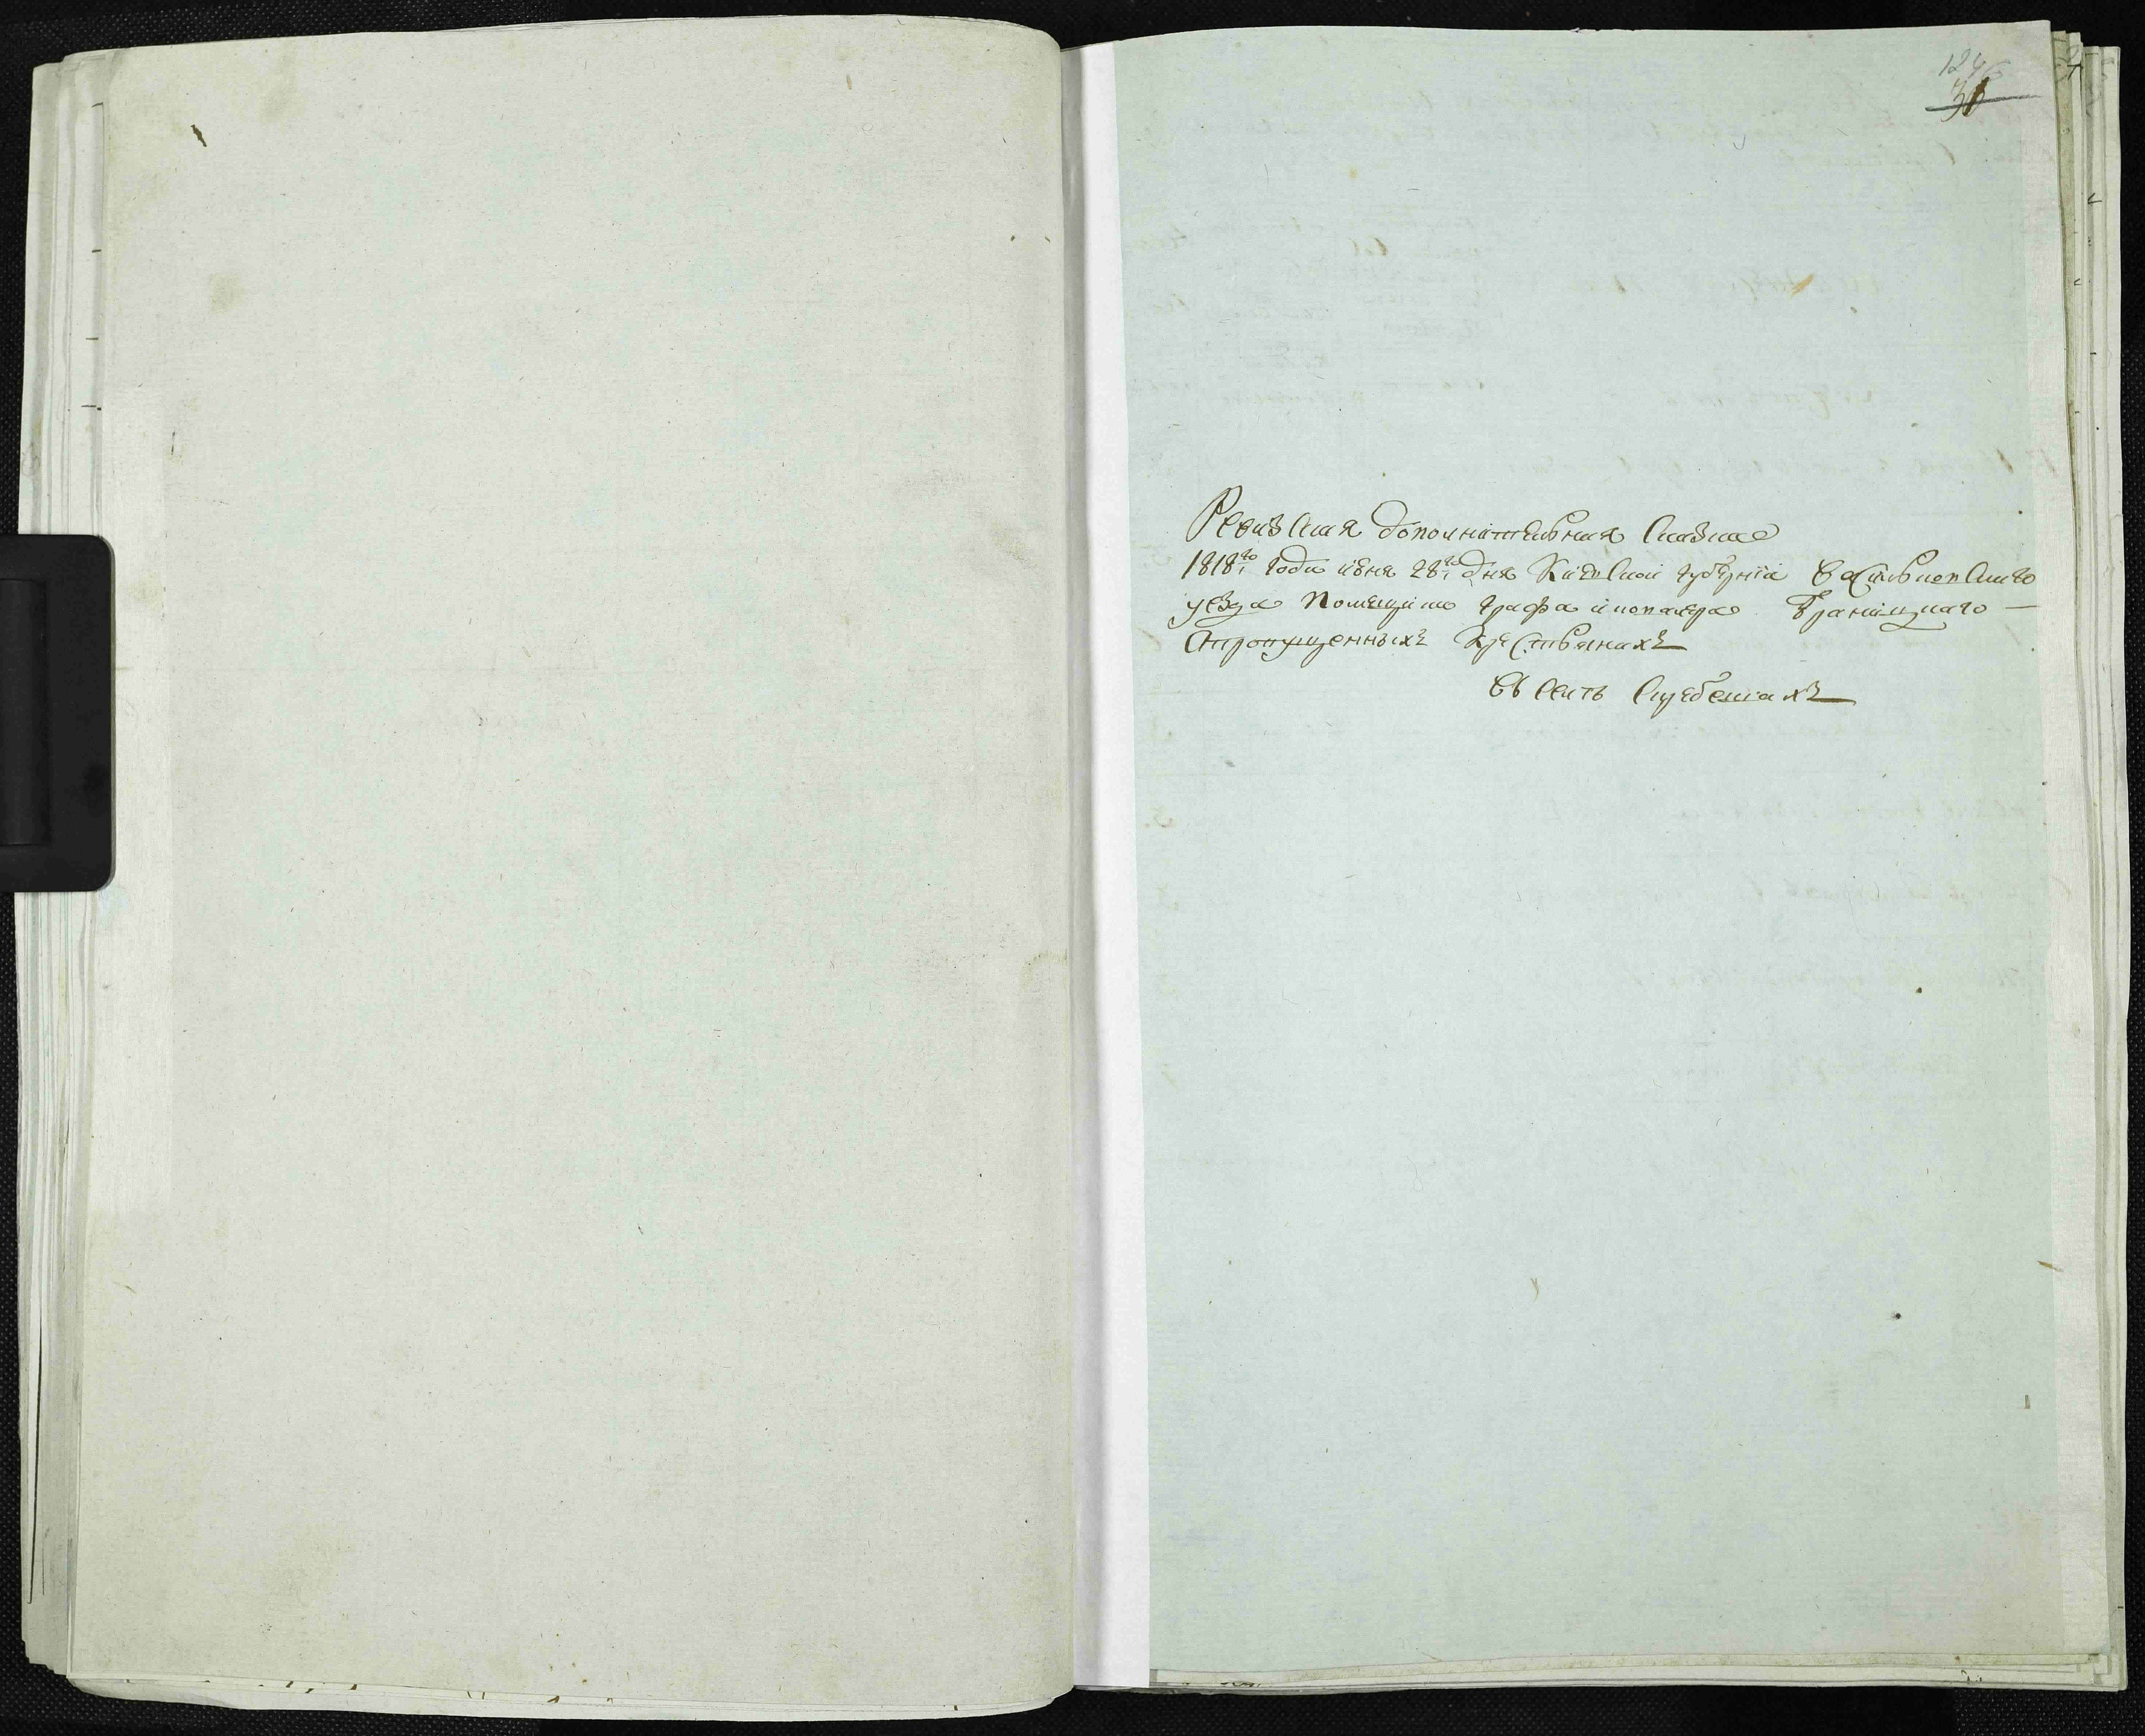 124
31
Ревизская дополнительная сказка
1818го года июня 28го дня Киевской губернии Василькувского
уезда Помещика графа и кавалера Браницкаго —
опропущенныхъ крестьянахъ
въ селѣ